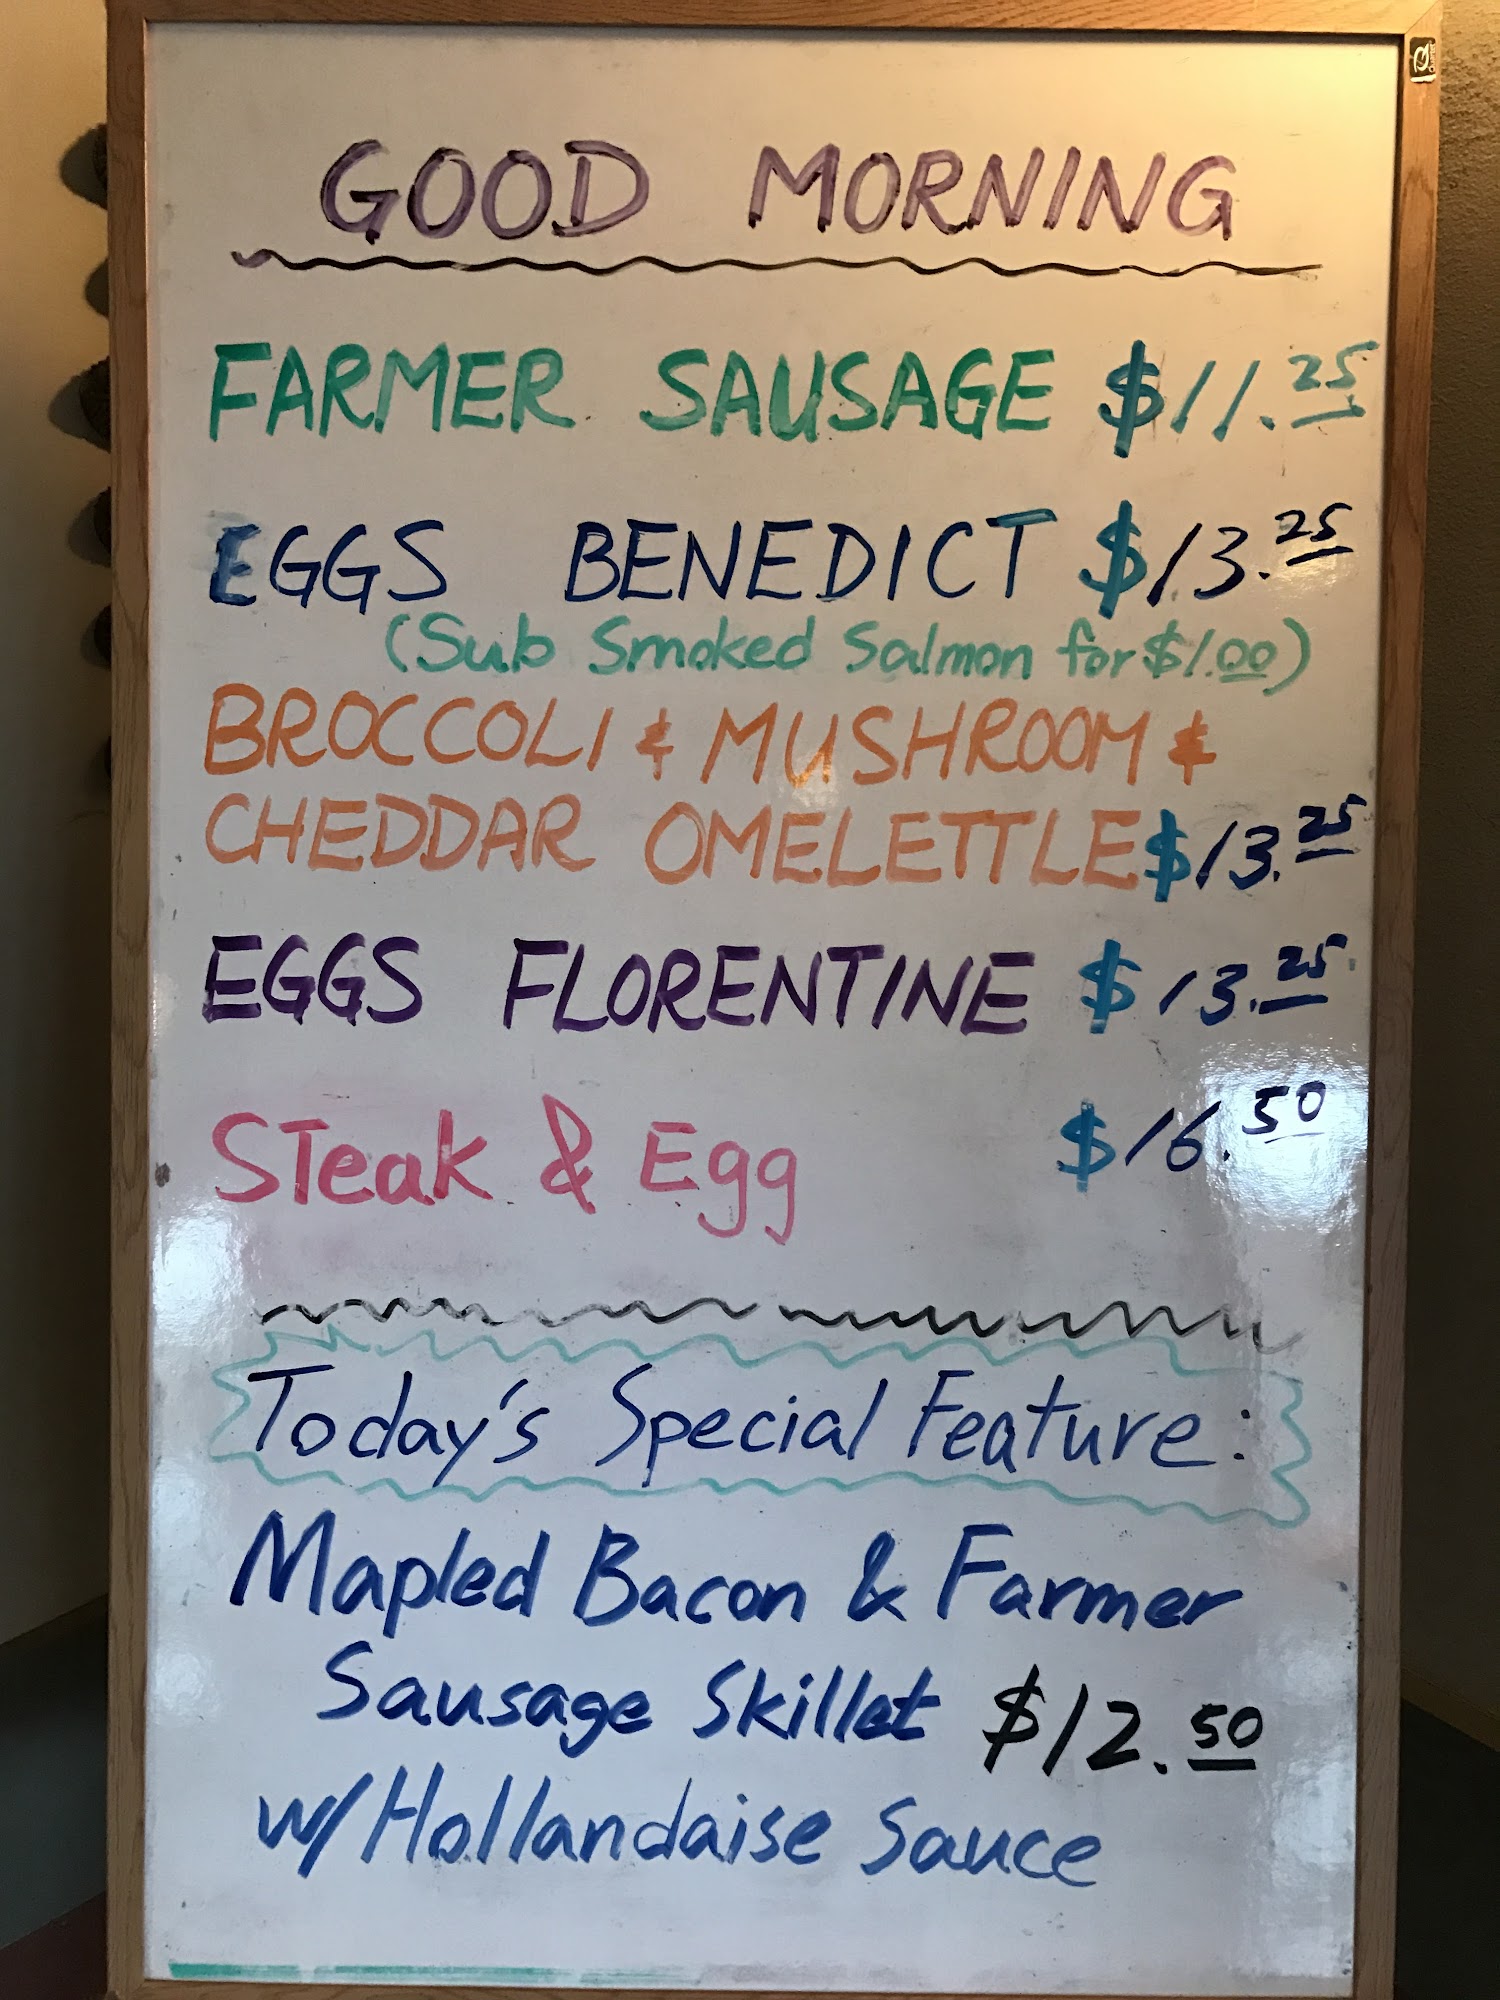 GOOD MORNING
FARMER SAUSAGE $11.25
EGGS BENEDICT $13.25
(Sub Smoked Salmon for $1.00)
BROCCOLI & MUSHROOM &
CHEDDAR OMELETTLE $13.25
EGGS FLORENTINE $13.25
STeak & Egg $16.50
Today's Special Feature:
Mapled Bacon & Farmer
Sausage Skillet $12.50
w/Hollandaise Sauce